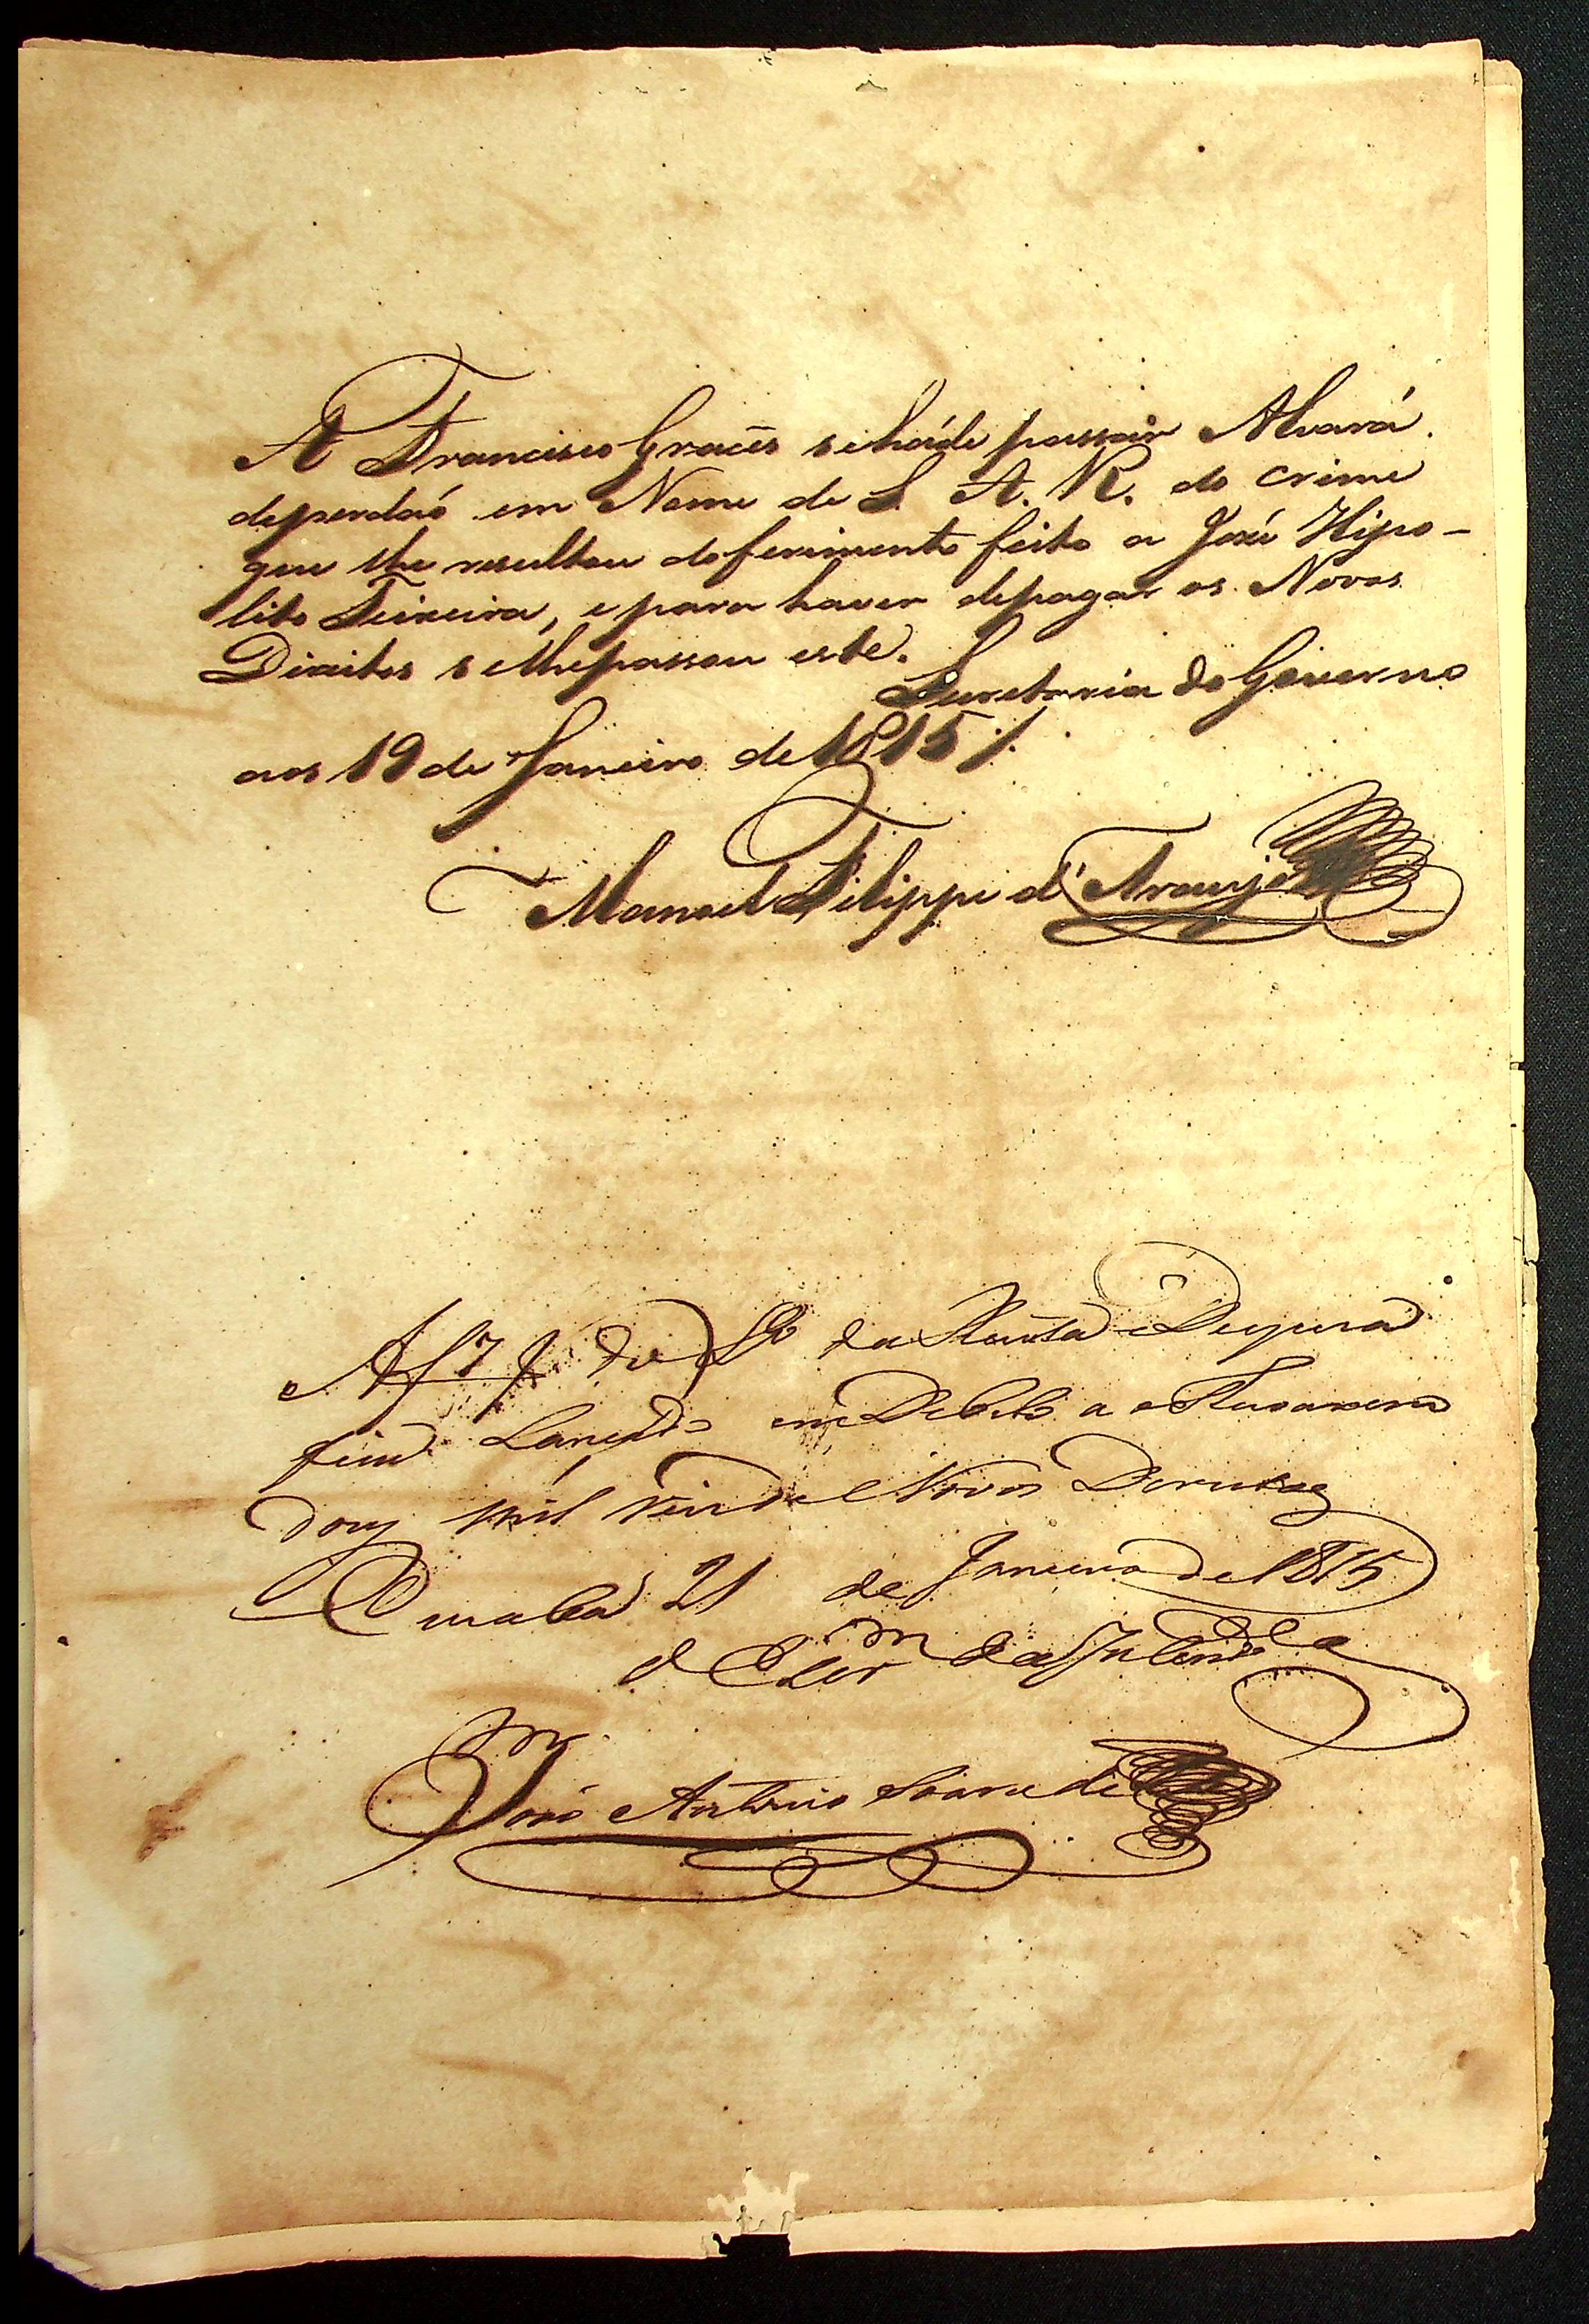 A Francisco Graces se háde passar Alvará
deperdaõ em Nome de S. A. R. do crime
que lhe resultou do ferimento feito a José Hipo-
lito Teixeira, e para haver depagar os Novos
Direitos se lhepassou este.
Secretaria do Governo
aos 19 de Janeiro de 1815
Manoel Filippe d'Araujo
Af 7 do da Receita e Despeza
fica em Debito a Thezoureiro
dous mil reis de Novos Dereitos
Cuiabá 21 de Janeiro de 1815
O Escr.m da Intend.a
José Antonio Soares